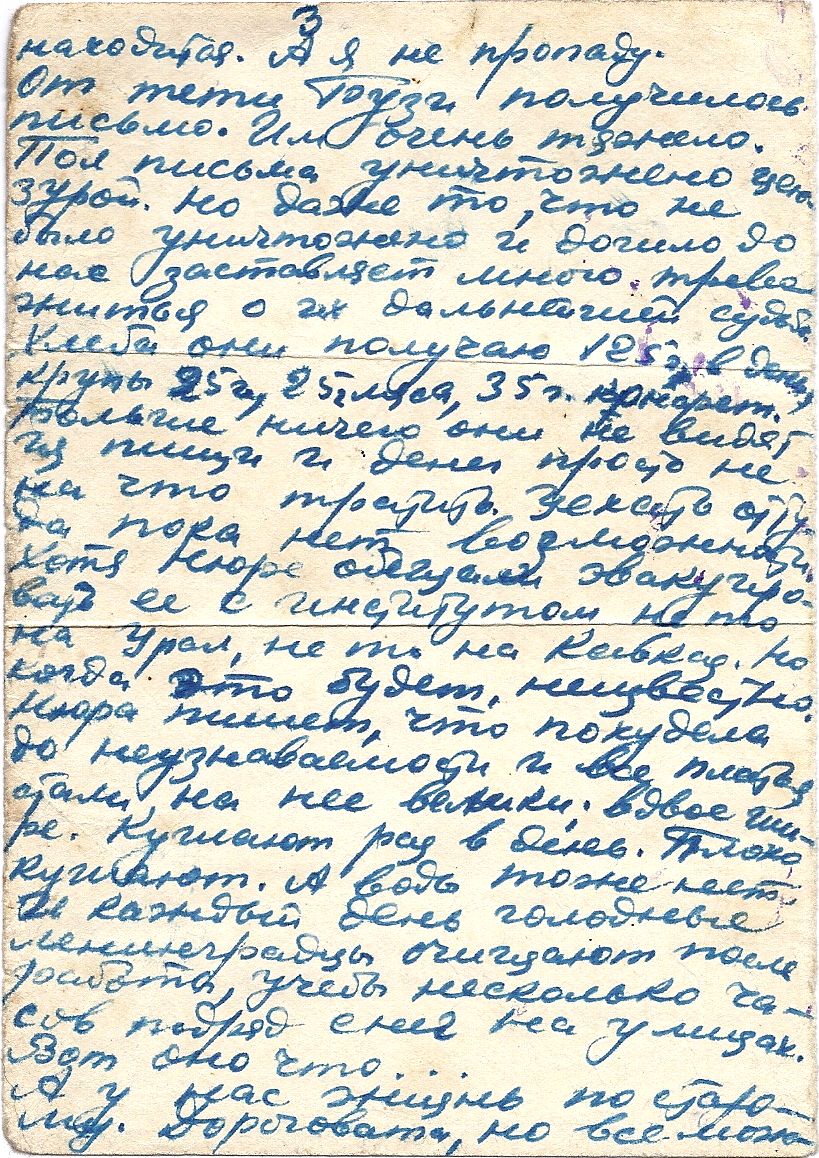 3
находится. А я не пропаду.
От тети Бузи получилось
письмо. Им очень тяжело.
Пол письма уничтожено цен-
зурой. Но даже то, что не
было уничтожено и дошло до
нас заставляет много трево
житься о их дальнейшей судьбе.
Хлеба они получаю 125 г. в день,
крупы 25 г., 25 г. мяса, 35 г. конфет.
Больше ничего они не видят
из пищи и денег просто не
на что тратить. Уехать отту-
да пока нет возможности,
хотя Нюре обещали эвакуиро-
вать ее с институтом не то
на Урал, не то на Кавказ. Но
когда это будет, неизвестно.
Нюра пишет, что похудела
до неузнаваемости и все платья
стали на нее велики, вдвое ши-
ре. Кушают раз в день. Плохо
кушают. А воды тоже нет.
И каждый день голодные
ленинградцы очищают после
работы, учебы несколько ча-
сов подряд снег на улицах.
Вот оно что...
А у нас жизнь по старо-
му. Дороговата, но все мож-